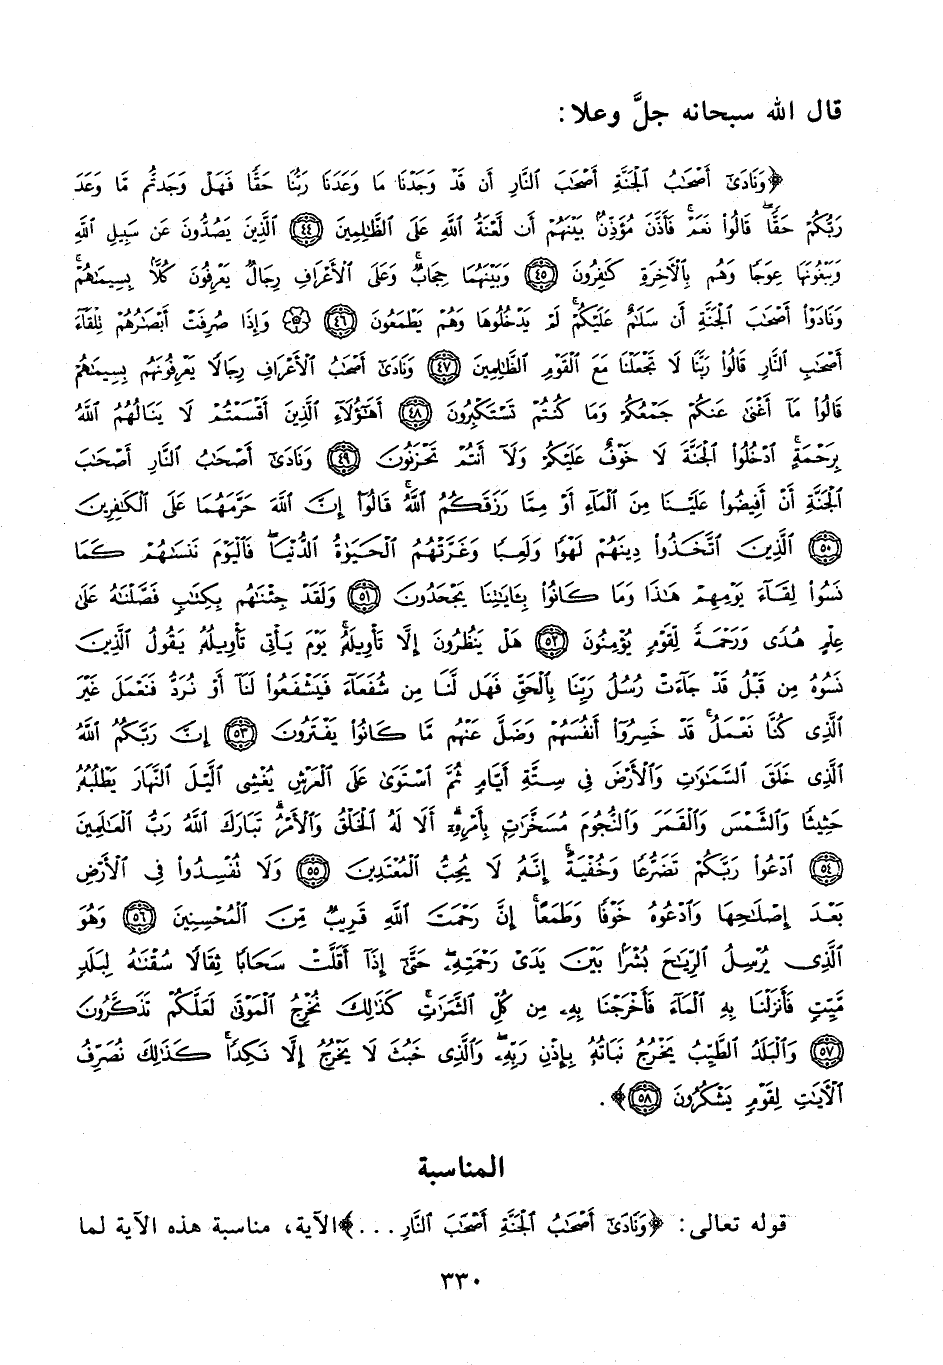 قال الله سبحانه جلَّ وعلا:
﴿وَنَادَىٰٓ أَصْحَٰبُ ٱلْجَنَّةِ أَصْحَٰبَ ٱلنَّارِ أَن قَدْ وَجَدْنَا مَا وَعَدَنَا رَبُّنَا حَقًّا فَهَلْ وَجَدتُّم مَّا وَعَدَ
رَبُّكُمْ حَقًّاۖ قَالُوا۟ نَعَمْۚ فَأَذَّنَ مُؤَذِّنٌۢ بَيْنَهُمْ أَن لَّعْنَةُ ٱللَّهِ عَلَى ٱلظَّٰلِمِينَ ﴿٤٤﴾ ٱلَّذِينَ يَصُدُّونَ عَن سَبِيلِ ٱللَّهِ
وَيَبْغُونَهَا عِوَجًا وَهُم بِٱلْأَخِرَةِ كَٰفِرُونَ ﴿٤٥﴾ وَبَيْنَهُمَا حِجَابٌۚ وَعَلَى ٱلْأَعْرَافِ رِجَالٌ يَعْرِفُونَ كُلًّۢا بِسِيمَىٰهُمْۚ
وَنَادَوْا۟ أَصْحَٰبَ ٱلْجَنَّةِ أَن سَلَٰمٌ عَلَيْكُمْۚ لَمْ يَدْخُلُوهَا وَهُمْ يَطْمَعُونَ ﴿٤٦﴾ ۞ وَإِذَا صُرِفَتْ أَبْصَٰرُهُمْ تِلْقَآءَ
أَصْحَٰبِ ٱلنَّارِ قَالُوا۟ رَبَّنَا لَا تَجْعَلْنَا مَعَ ٱلْقَوْمِ ٱلظَّٰلِمِينَ ﴿٤٧﴾ وَنَادَىٰٓ أَصْحَٰبُ ٱلْأَعْرَافِ رِجَالًا يَعْرِفُونَهُم بِسِيمَىٰهُمْ
قَالُوا۟ مَآ أَغْنَىٰ عَنكُمْ جَمْعُكُمْ وَمَا كُنتُمْ تَسْتَكْبِرُونَ ﴿٤٨﴾ أَهَٰٓؤُلَآءِ ٱلَّذِينَ أَقْسَمْتُمْ لَا يَنَالُهُمُ ٱللَّهُ
بِرَحْمَةٍۚ ٱدْخُلُوا۟ ٱلْجَنَّةَ لَا خَوْفٌ عَلَيْكُمْ وَلَآ أَنتُمْ تَحْزَنُونَ ﴿٤٩﴾ وَنَادَىٰٓ أَصْحَٰبُ ٱلنَّارِ أَصْحَٰبَ
ٱلْجَنَّةِ أَنْ أَفِيضُوا۟ عَلَيْنَا مِنَ ٱلْمَآءِ أَوْ مِمَّا رَزَقَكُمُ ٱللَّهُۚ قَالُوٓا۟ إِنَّ ٱللَّهَ حَرَّمَهُمَا عَلَى ٱلْكَٰفِرِينَ
﴿٥٠﴾ ٱلَّذِينَ ٱتَّخَذُوا۟ دِينَهُمْ لَهْوًا وَلَعِبًا وَغَرَّتْهُمُ ٱلْحَيَوٰةُ ٱلدُّنْيَاۚ فَٱلْيَوْمَ نَنسَىٰهُمْ كَمَا
نَسُوا۟ لِقَآءَ يَوْمِهِمْ هَٰذَا وَمَا كَانُوا۟ بِـَٔايَٰتِنَا يَجْحَدُونَ ﴿٥١﴾ وَلَقَدْ جِئْنَٰهُم بِكِتَٰبٍ فَصَّلْنَٰهُ عَلَىٰ
عِلْمٍ هُدًى وَرَحْمَةً لِّقَوْمٍ يُؤْمِنُونَ ﴿٥٢﴾ هَلْ يَنظُرُونَ إِلَّا تَأْوِيلَهُۥۚ يَوْمَ يَأْتِى تَأْوِيلُهُۥ يَقُولُ ٱلَّذِينَ
نَسُوهُ مِن قَبْلُ قَدْ جَآءَتْ رُسُلُ رَبِّنَا بِٱلْحَقِّ فَهَل لَّنَا مِن شُفَعَآءَ فَيَشْفَعُوا۟ لَنَآ أَوْ نُرَدُّ فَنَعْمَلَ غَيْرَ
ٱلَّذِى كُنَّا نَعْمَلُۚ قَدْ خَسِرُوٓا۟ أَنفُسَهُمْ وَضَلَّ عَنْهُم مَّا كَانُوا۟ يَفْتَرُونَ ﴿٥٣﴾ إِنَّ رَبَّكُمُ ٱللَّهُ
ٱلَّذِى خَلَقَ ٱلسَّمَٰوَٰتِ وَٱلْأَرْضَ فِى سِتَّةِ أَيَّامٍ ثُمَّ ٱسْتَوَىٰ عَلَى ٱلْعَرْشِ يُغْشِى ٱلَّيْلَ ٱلنَّهَارَ يَطْلُبُهُۥ
حَثِيثًا وَٱلشَّمْسَ وَٱلْقَمَرَ وَٱلنُّجُومَ مُسَخَّرَٰتٍۭ بِأَمْرِهِۦٓۗ أَلَا لَهُ ٱلْخَلْقُ وَٱلْأَمْرُۗ تَبَارَكَ ٱللَّهُ رَبُّ ٱلْعَٰلَمِينَ
﴿٥٤﴾ ٱدْعُوا۟ رَبَّكُمْ تَضَرُّعًا وَخُفْيَةًۚ إِنَّهُۥ لَا يُحِبُّ ٱلْمُعْتَدِينَ ﴿٥٥﴾ وَلَا تُفْسِدُوا۟ فِى ٱلْأَرْضِ
بَعْدَ إِصْلَٰحِهَا وَٱدْعُوهُ خَوْفًا وَطَمَعًاۚ إِنَّ رَحْمَتَ ٱللَّهِ قَرِيبٌ مِّنَ ٱلْمُحْسِنِينَ ﴿٥٦﴾ وَهُوَ
ٱلَّذِى يُرْسِلُ ٱلرِّيَٰحَ بُشْرًۢا بَيْنَ يَدَىْ رَحْمَتِهِۦۖ حَتَّىٰٓ إِذَآ أَقَلَّتْ سَحَابًا ثِقَالًا سُقْنَٰهُ لِبَلَدٍ
مَّيِّتٍ فَأَنزَلْنَا بِهِ ٱلْمَآءَ فَأَخْرَجْنَا بِهِۦ مِن كُلِّ ٱلثَّمَرَٰتِۚ كَذَٰلِكَ نُخْرِجُ ٱلْمَوْتَىٰ لَعَلَّكُمْ تَذَكَّرُونَ
﴿٥٧﴾ وَٱلْبَلَدُ ٱلطَّيِّبُ يَخْرُجُ نَبَاتُهُۥ بِإِذْنِ رَبِّهِۦۖ وَٱلَّذِى خَبُثَ لَا يَخْرُجُ إِلَّا نَكِدًاۚ كَذَٰلِكَ نُصَرِّفُ
ٱلْأَيَٰتِ لِقَوْمٍ يَشْكُرُونَ ﴿٥٨﴾﴾.
المناسبة
قوله تعالى: ﴿وَنَادَىٰٓ أَصْحَٰبُ ٱلْجَنَّةِ أَصْحَٰبَ ٱلنَّارِ...﴾الآية، مناسبة هذه الآية لما
٣٣٠